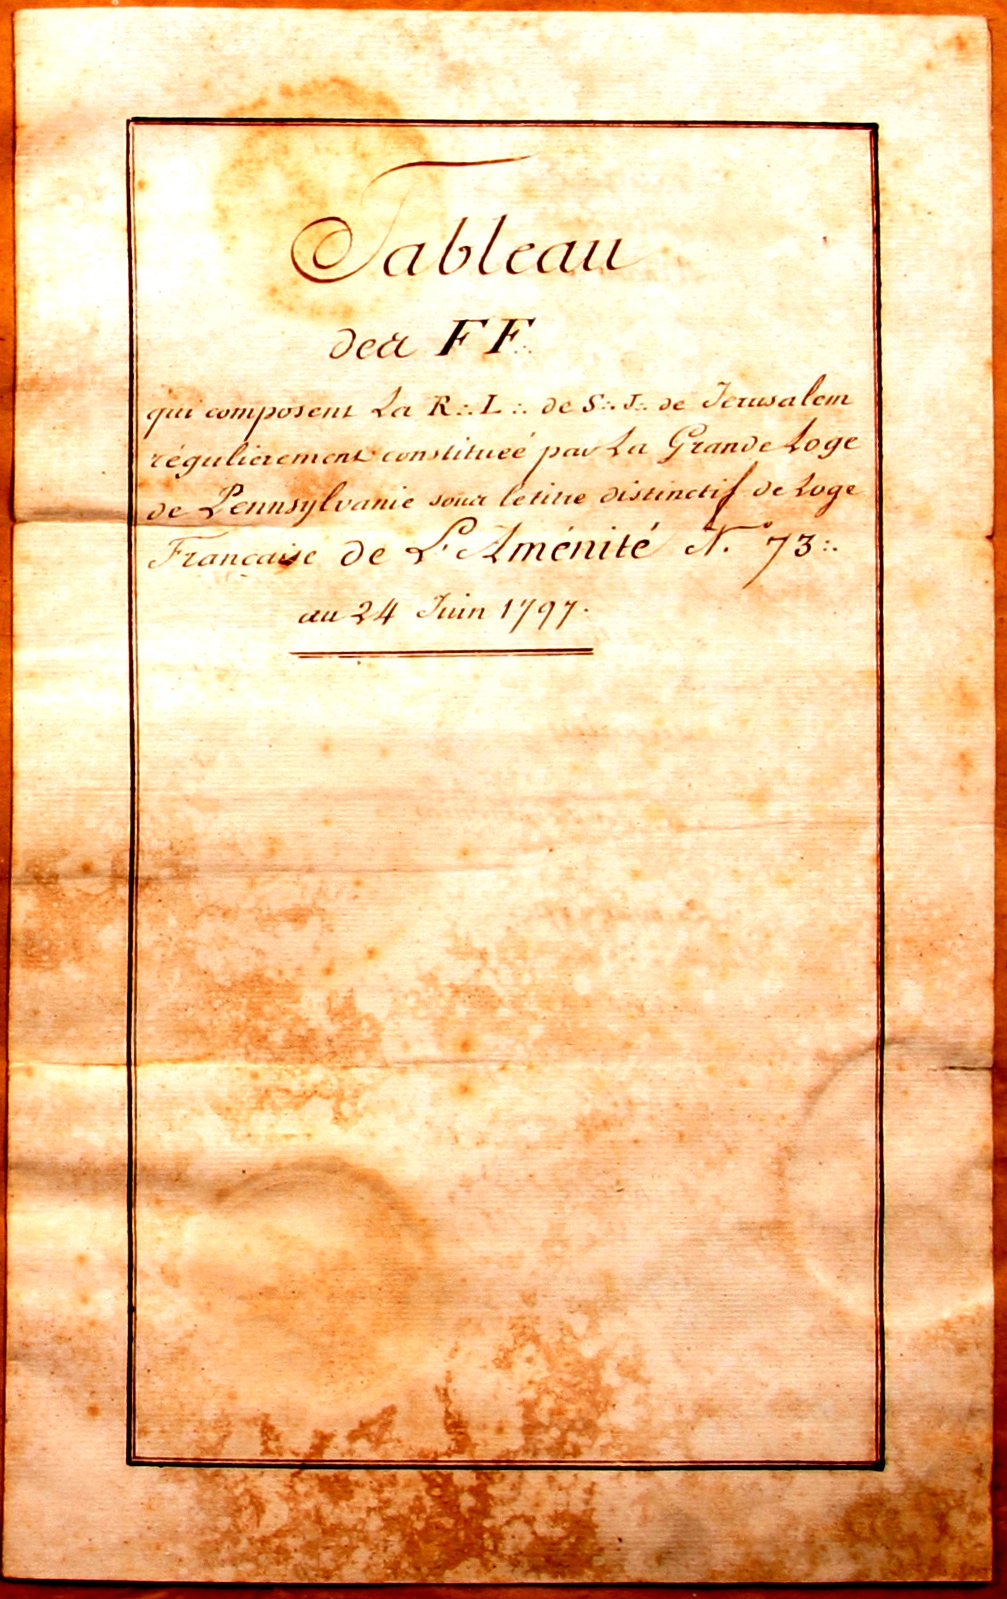 Tableau
des FF∴
qui composent La R∴ L∴ de S∴ J∴ de Jerusalem
régulierement constitueé par La Grande Loge
de Pennsylvanie sous le titre distinctif de Loge
Française de L'Aménité N.° 73∴
au 24 Juin 1797.